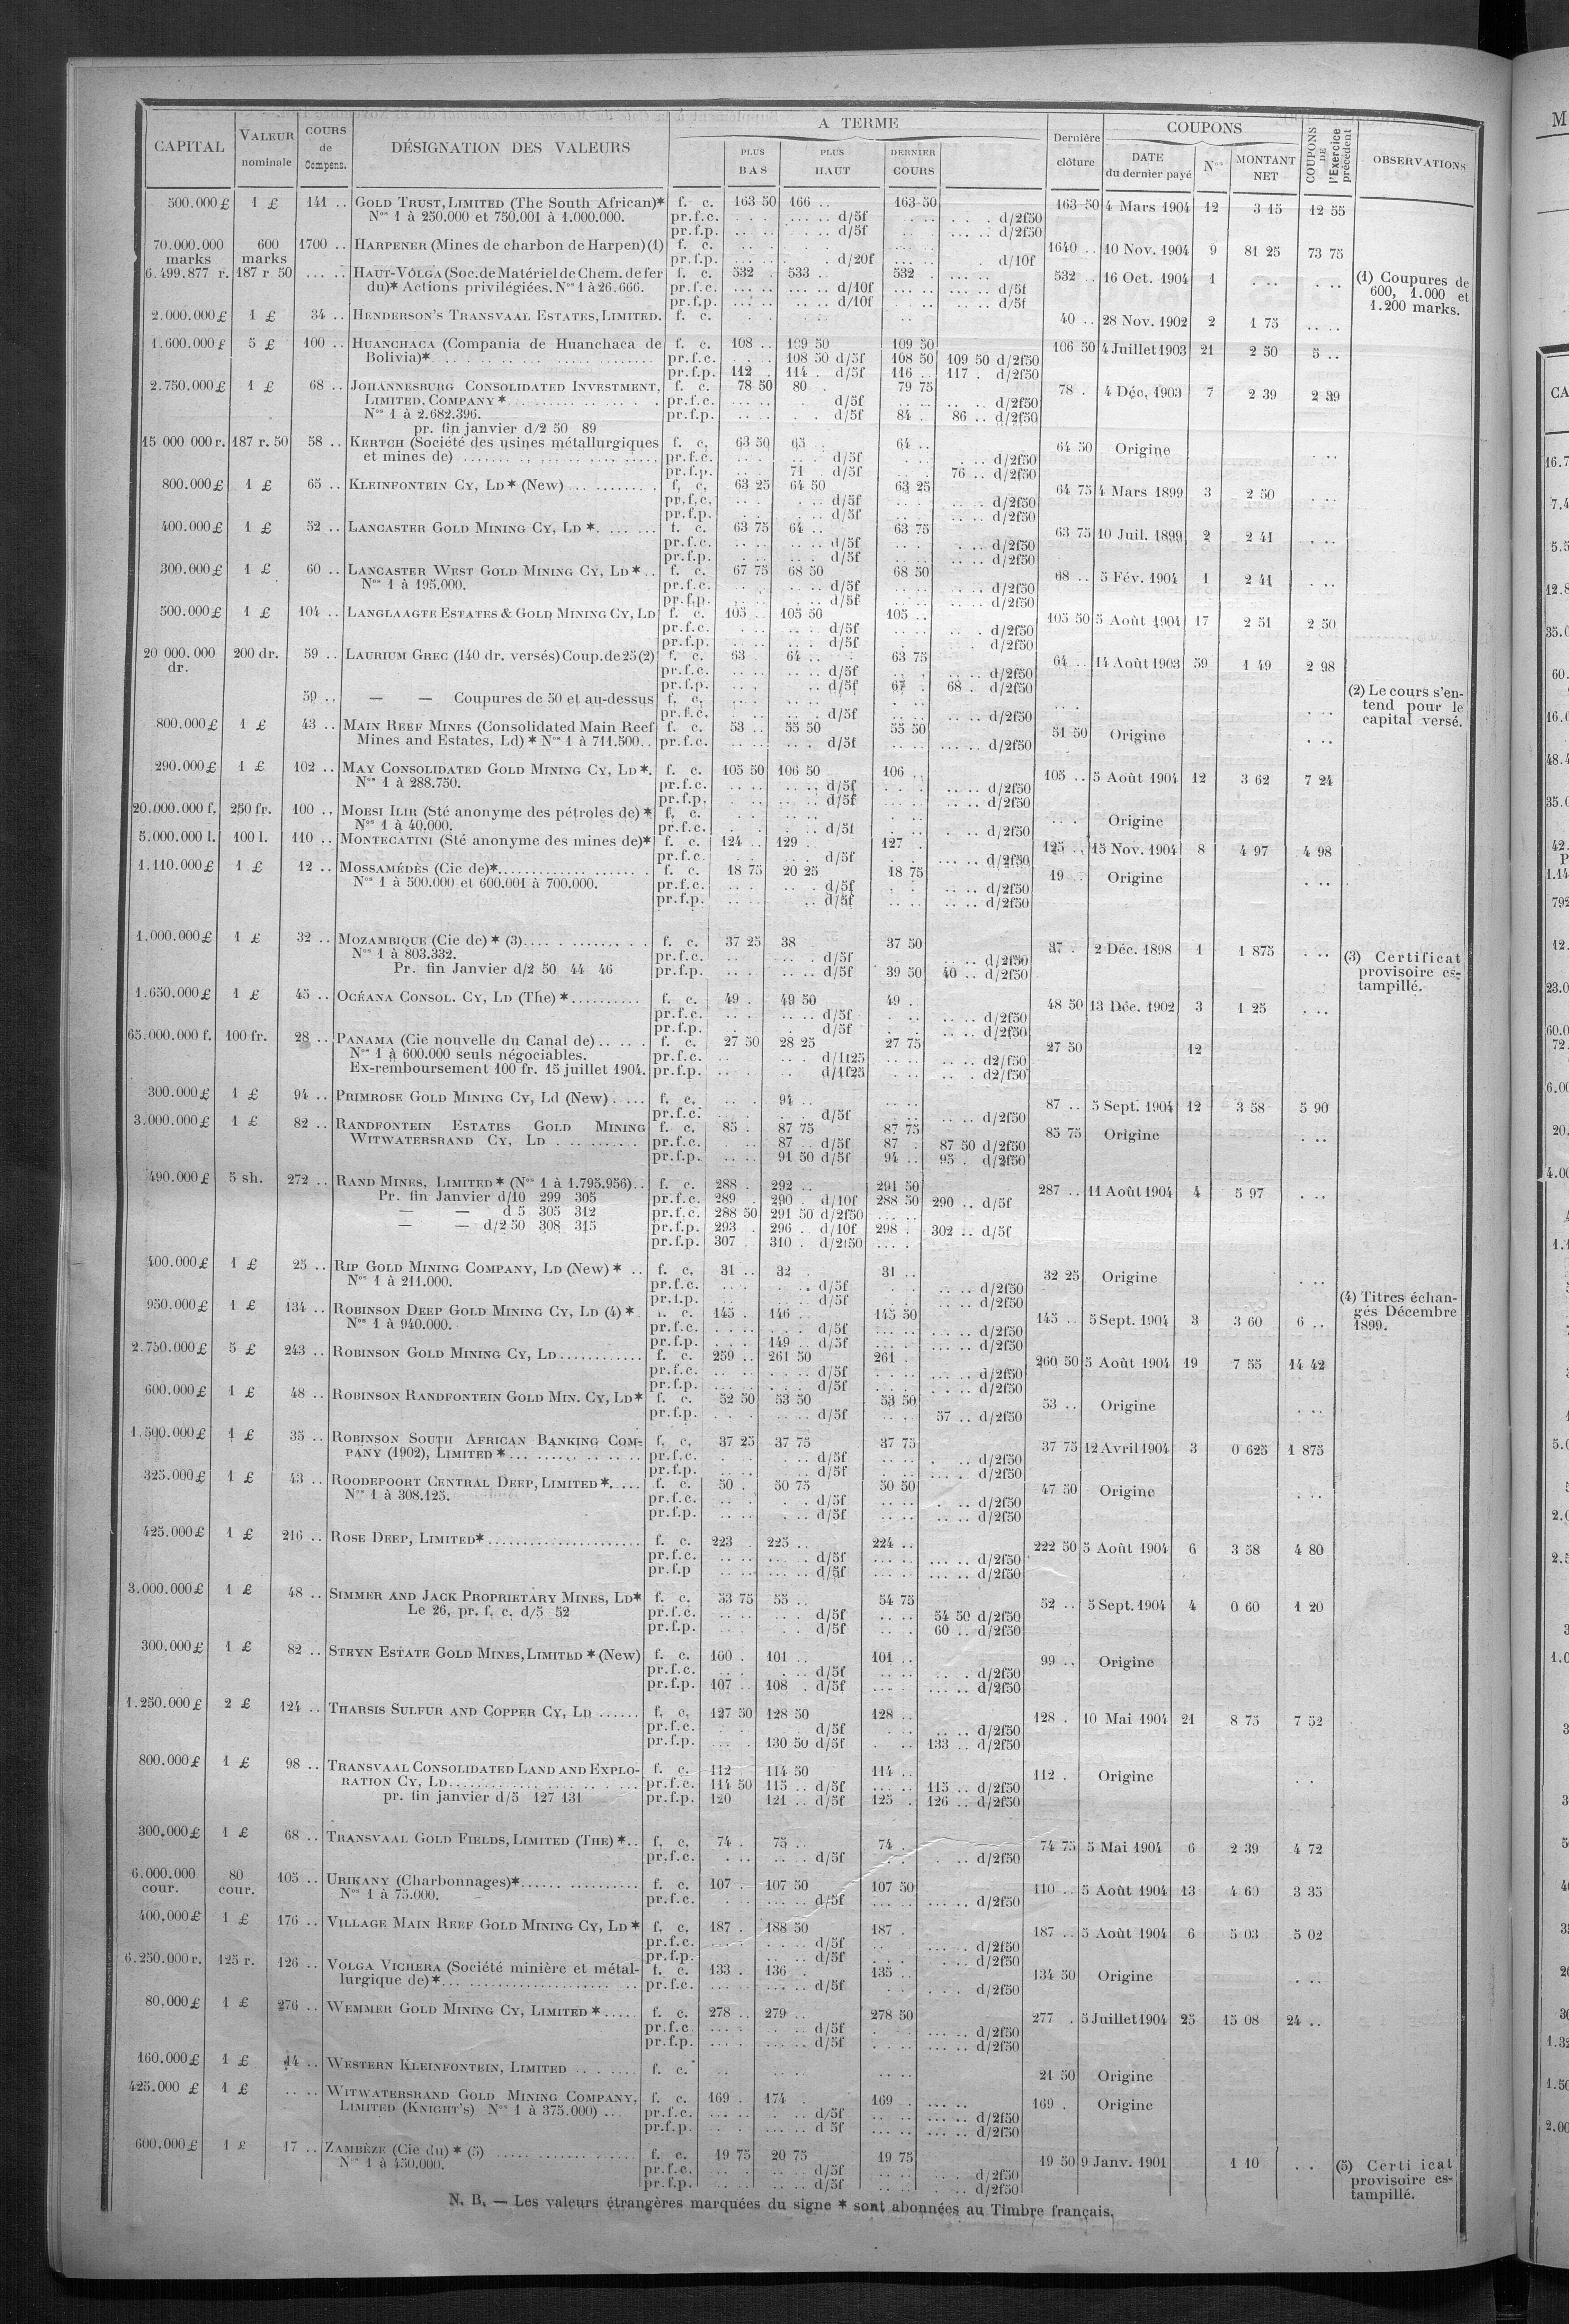 CAPITAL | VALEUR nominale | COURS de Compens. | DÉSIGNATION DES VALEURS | A TERME | PLUS BAS | PLUS HAUT | DERNIER COURS | Dernière clôture | COUPONS | DATE du dernier payé | Nos | MONTANT NET | COUPONS DE l'Exercice précédent | OBSERVATIONS
500.000 £ 1 £ 141 .. GOLD TRUST, LIMITED (The South African)* f. c. 163 50 166 .. 163 50 163 50 4 Mars 1904 12 3 15 12 55
Nos 1 à 250.000 et 750.001 à 1.000.000. pr.f.c. d/5f d/2f50
pr.f.p. d/5f d/2f50
70.000.000 marks 600 marks 1700 .. HARPENER (Mines de charbon de Harpen) (1) f. c. 1640 .. 10 Nov. 1904 9 81 25 73 75
pr.f.p. d/20f d/10f
6.499.877 r. 187 r. 50 HAUT-VOLGA (Soc. de Matériel de Chem. de fer f. c. 532 533 .. 532 532 .. 16 Oct. 1904 1
du)* Actions privilégiées. Nos 1 à 26.666. pr.f.c. d/10f d/5f
pr.f.p. d/10f d/5f
(1) Coupures de 600, 1.000 et 1.200 marks.
2.000.000 £ 1 £ 34 .. HENDERSON'S TRANSVAAL ESTATES, LIMITED. f. c. 40 .. 28 Nov. 1902 2 1 75
1.600.000 £ 5 £ 100 .. HUANCHACA (Compania de Huanchaca de f. c. 108 .. 109 50 109 50 106 50 4 Juillet 1903 21 2 50 5 ..
Bolivia)* pr.f.c. 108 50 d/5f 108 50 109 50 d/2f50
pr.f.p. 112 114 . d/5f 116 .. 117 . d/2f50
2.750.000 £ 1 £ 68 .. JOHANNESBURG CONSOLIDATED INVESTMENT, f. c. 78 50 80 . 79 75 78 . 4 Déc. 1903 7 2 39 2 39
LIMITED, COMPANY * pr.f.c. d/5f d/2f50
Nos 1 à 2.682.396. pr.f.p. d/5f 84 . 86 .. d/2f50
pr. fin janvier d/2 50 89
15 000 000 r. 187 r. 50 58 .. KERTCH (Société des usines métallurgiques f. c. 63 50 65 64 .. 64 50 Origine
et mines de) pr.f.c. d/5f d/2f50
pr.f.p. 71 d/5f 76 .. d/2f50
800.000 £ 1 £ 65 .. KLEINFONTEIN CY, LD * (New) f. c. 63 25 64 50 63 25 64 75 4 Mars 1899 3 2 50
pr.f.c. d/5f d/2f50
pr.f.p. d/5f d/2f50
400.000 £ 1 £ 52 .. LANCASTER GOLD MINING CY, LD * f. c. 63 75 64 .. 63 75 63 75 10 Juil. 1899 2 2 41
pr.f.c. d/5f d/2f50
pr.f.p. d/5f d/2f50
300.000 £ 1 £ 60 .. LANCASTER WEST GOLD MINING CY, LD * .. f. c. 67 75 68 50 68 50 68 .. 5 Fév. 1904 1 2 41
Nos 1 à 195.000. pr.f.c. d/5f d/2f50
pr.f.p. d/5f d/2f50
500.000 £ 1 £ 104 .. LANGLAAGTE ESTATES & GOLD MINING CY, LD f. c. 105 .. 105 50 105 .. 105 50 5 Août 1904 17 2 51 2 50
pr.f.c. d/5f d/2f50
pr.f.p. d/5f d/2f50
20 000.000 dr. 200 dr. 59 .. LAURIUM GREC (140 dr. versés) Coup. de 25 (2) f. c. 63 . 64 .. 63 75 64 .. 14 Août 1903 59 1 49 2 98
pr.f.c. d/5f d/2f50
pr.f.p. d/5f 67 . 68 . d/2f50
59 .. — — Coupures de 50 et au-dessus f. c.
pr.f.c. d/5f d/2f50
(2) Le cours s'entend pour le capital versé.
800.000 £ 1 £ 43 .. MAIN REEF MINES (Consolidated Main Reef f. c. 53 .. 55 50 55 50 51 50 Origine
Mines and Estates, Ld) * Nos 1 à 711.500.. pr.f.c. d/5f d/2f50
290.000 £ 1 £ 102 .. MAY CONSOLIDATED GOLD MINING CY, LD *. f. c. 105 50 106 50 106 .. 105 .. 5 Août 1904 12 3 62 7 24
Nos 1 à 288.750. pr.f.c. d/5f d/2f50
pr.f.p. d/5f d/2f50
20.000.000 f. 250 fr. 100 .. MOESI ILIR (Sté anonyme des pétroles de) * f. c. Origine
Nos 1 à 40.000. pr.f.c. d/5f d/2f50
5.000.000 l. 100 l. 110 .. MONTECATINI (Sté anonyme des mines de)* f. c. 124 .. 129 .. 127 . 125 .. 15 Nov. 1904 8 4 97 4 98
pr.f.c. d/5f d/2f50
1.110.000 £ 1 £ 12 .. MOSSAMÉDÈS (Cie de)* f. c. 18 75 20 25 18 75 19 .. Origine
Nos 1 à 500.000 et 600.001 à 700.000. pr.f.c. d/5f d/2f50
pr.f.p. d/5f d/2f50
1.000.000 £ 1 £ 32 .. MOZAMBIQUE (Cie de) * (3) f. c. 37 25 38 37 50 37 . 2 Déc. 1898 1 1 875
Nos 1 à 803.332. pr.f.c. d/5f d/2f50
Pr. fin Janvier d/2 50 44 46 pr.f.p. d/5f 39 50 40 .. d/2f50
(3) Certificat provisoire estampillé.
1.650.000 £ 1 £ 45 .. OCÉANA CONSOL. CY, LD (The) * f. c. 49 . 49 50 49 . 48 50 13 Déc. 1902 3 1 25
pr.f.c. d/5f d/2f50
pr.f.p. d/5f d/2f50
65.000.000 f. 100 fr. 28 .. PANAMA (Cie nouvelle du Canal de) f. c. 27 50 28 25 27 75 27 50 12
Nos 1 à 600.000 seuls négociables. pr.f.c. d/1f25 d2/f50
Ex-remboursement 100 fr. 15 juillet 1904. pr.f.p. d/1f25 d2/f50
300.000 £ 1 £ 94 .. PRIMROSE GOLD MINING CY, Ld (New) f. c. 94 .. 87 .. 5 Sept. 1904 12 3 58 5 90
pr.f.c. d/5f d/2f50
3.000.000 £ 1 £ 82 .. RANDFONTEIN ESTATES GOLD MINING f. c. 85 . 87 75 87 75 85 75 Origine
WITWATERSRAND CY, LD pr.f.c. 87 .. d/5f 87 . 87 50 d/2f50
pr.f.p. 91 50 d/5f 94 .. 95 . d/2f50
490.000 £ 5 sh. 272 .. RAND MINES, LIMITED * (Nos 1 à 1.795.956).. f. c. 288 . 292 .. 291 50 287 .. 11 Août 1904 4 5 97
Pr. fin Janvier d/10 299 305 pr.f.c. 289 . 290 . d/10f 288 50 290 .. d/5f
— — d 5 305 312 pr.f.c. 288 50 291 50 d/2f50
— — d/2 50 308 315 pr.f.p. 293 . 296 . d/10f 298 . 302 .. d/5f
pr.f.p. 307 . 310 . d/2f50
400.000 £ 1 £ 25 .. RIP GOLD MINING COMPANY, LD (New) * .. f. c. 31 .. 32 . 31 .. 32 25 Origine
Nos 1 à 211.000. pr.f.c. d/5f d/2f50
pr.f.p. d/5f d/2f50
950.000 £ 1 £ 134 .. ROBINSON DEEP GOLD MINING CY, LD (4) * c. 145 . 146 .. 145 50 145 .. 5 Sept. 1904 3 3 60 6 ..
Nos 1 à 940.000. pr.f.c. d/5f d/2f50
pr.f.p. 149 .. d/5f d/2f50
(4) Titres échangés Décembre 1899.
2.750.000 £ 5 £ 243 .. ROBINSON GOLD MINING CY, LD f. c. 259 .. 261 50 261 . 260 50 5 Août 1904 19 7 55 14 42
pr.f.c. d/5f d/2f50
pr.f.p. d/5f d/2f50
600.000 £ 1 £ 48 .. ROBINSON RANDFONTEIN GOLD MIN. CY, LD* f. c. 52 50 53 50 53 50 53 .. Origine
pr.f.p. d/5f 57 .. d/2f50
1.500.000 £ 1 £ 35 .. ROBINSON SOUTH AFRICAN BANKING COM- f. c. 37 25 37 75 37 75 37 75 12 Avril 1904 3 0 625 1 875
PANY (1902), LIMITED * pr.f.c. d/5f d/2f50
pr.f.p. d/5f d/2f50
325.000 £ 1 £ 43 .. ROODEPOORT CENTRAL DEEP, LIMITED * f. c. 50 . 50 75 50 50 47 50 Origine
Nos 1 à 308.125. pr.f.c. d/5f d/2f50
pr.f.p. d/5f d/2f50
425.000 £ 1 £ 216 .. ROSE DEEP, LIMITED* f. c. 223 . 225 .. 224 .. 222 50 5 Août 1904 6 3 58 4 80
pr.f.c. d/5f d/2f50
pr.f.p d/5f d/2f50
3.000.000 £ 1 £ 48 .. SIMMER AND JACK PROPRIETARY MINES, LD* f. c. 53 75 55 .. 54 75 52 .. 5 Sept. 1904 4 0 60 1 20
Le 26, pr. f. c. d/5 52 pr.f.c. d/5f 54 50 d/2f50
pr.f.p. d/5f 60 .. d/2f50
300.000 £ 1 £ 82 .. STEYN ESTATE GOLD MINES, LIMITED * (New) f. c. 100 . 101 .. 101 .. 99 .. Origine
pr.f.c. d/5f d/2f50
pr.f.p. 107 .. 108 . d/5f d/2f50
1.250.000 £ 2 £ 124 .. THARSIS SULFUR AND COPPER CY, LD f. c. 127 50 128 50 128 .. 128 . 10 Mai 1904 21 8 75 7 52
pr.f.c. d/5f d/2f50
pr.f.p. 130 50 d/5f 133 .. d/2f50
800.000 £ 1 £ 98 .. TRANSVAAL CONSOLIDATED LAND AND EXPLO- f. c. 112 114 50 114 .. 112 . Origine
RATION CY, LD pr.f.c. 114 50 115 .. d/5f 115 .. d/2f50
pr. fin janvier d/5 127 131 pr.f.p. 120 121 .. d/5f 125 . 126 .. d/2f50
300.000 £ 1 £ 68 .. TRANSVAAL GOLD FIELDS, LIMITED (THE) * .. f. c. 74 . 75 .. 74 . 74 75 5 Mai 1904 6 2 39 4 72
pr.f.c. d/5f d/2f50
6.000.000 cour. 80 cour. 105 .. URIKANY (Charbonnages)* f. c. 107 . 107 50 107 50 110 .. 5 Août 1904 13 4 60 3 35
Nos 1 à 75.000. pr.f.c. d/5f d/2f50
400,000 £ 1 £ 176 .. VILLAGE MAIN REEF GOLD MINING CY, LD * f. c. 187 . 188 50 187 . 187 .. 5 Août 1904 6 5 03 5 02
pr.f.c. d/5f d/2f50
pr.f.p. d/5f d/2f50
6.250.000 r. 125 r. 126 .. VOLGA VICHERA (Société minière et métal- f. c. 133 . 136 . 135 .. 134 50 Origine
lurgique de) * pr.f.c. d/5f d/2f50
80.000 £ 1 £ 276 .. WEMMER GOLD MINING CY, LIMITED * f. c. 278 .. 279 .. 278 50 277 . 5 Juillet 1904 25 15 08 24 ..
pr.f.c d/5f d/2f50
pr.f.p. d/5f d/2f50
160.000 £ 1 £ 14 .. WESTERN KLEINFONTEIN, LIMITED f. c. 21 50 Origine
425.000 £ 1 £ WITWATERSRAND GOLD MINING COMPANY, f. c. 169 . 174 . 169 . 169 . Origine
LIMITED (KNIGHT'S) Nos 1 à 375.000) pr.f.c. d/5f d/2f50
pr.f.p. d 5f d/2f50
600.000 £ 1 £ 17 .. ZAMBÈZE (Cie du) * (5) f. c. 19 75 20 75 19 75 19 50 9 Janv. 1901 1 10
Nos 1 à 450.000. pr.f.c. d/5f d/2f50
pr.f.p. d/5f d/2f50
(5) Certi icat provisoire estampillé.
N. B. — Les valeurs étrangères marquées du signe * sont abonnées au Timbre français.